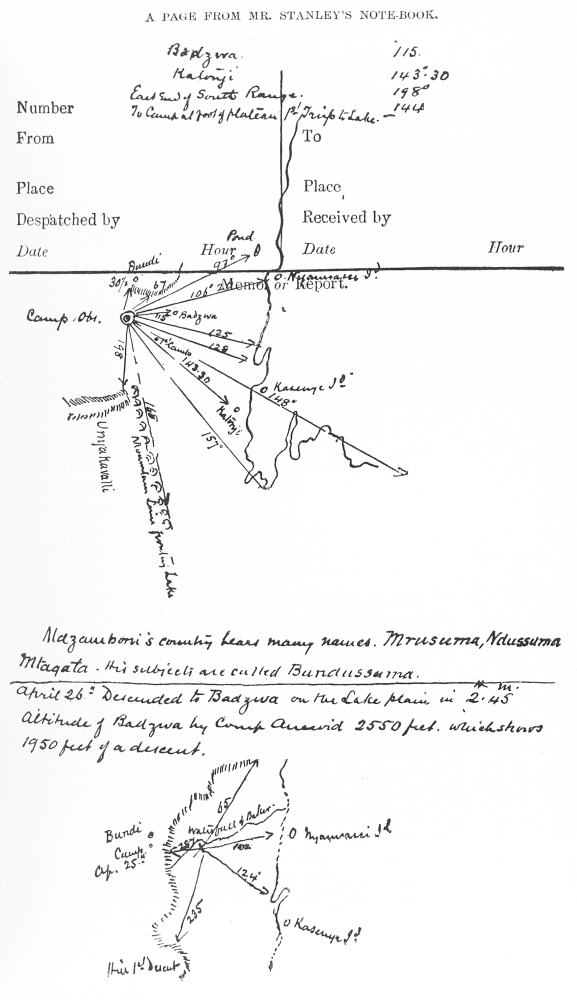 A PAGE FROM MR. STANLEY'S NOTE-BOOK.
Badzwa. 115.
Katonji 143°30
East End of South Range. 198°
To Camp at foot of plateau 1st Trip to Lake. — 144
Number
From To
Place Place
Despatched by Received by
Date Hour Date Hour
Pond
Bundi
97°
30½°
67
Memo. or Report.
Nyamsassi Id.
106°
Camp. Obs.
115 Badzwa
125
128
198
1st Camp
143.30
Kasenye Id.
148°
Katonji
157°
168
Unyakavalli
Mountain Line fronting Lake
Mazamboni's country bears many names. Mrusuma, Ndussuma
Mtagata. His subjects are called Bundussuma.
April 26th Descended to Badzwa on the Lake plain in H. M. 2.45
Altitude of Badzwa by Comp Aneroid 2550 feet. which shows
1950 feet of a descent.
65
Waterfall &
Bundi
Camp
Ap. 25th
102
Nyamsassi Id
124°
235
Kasenye Id
Hill 1st Descent